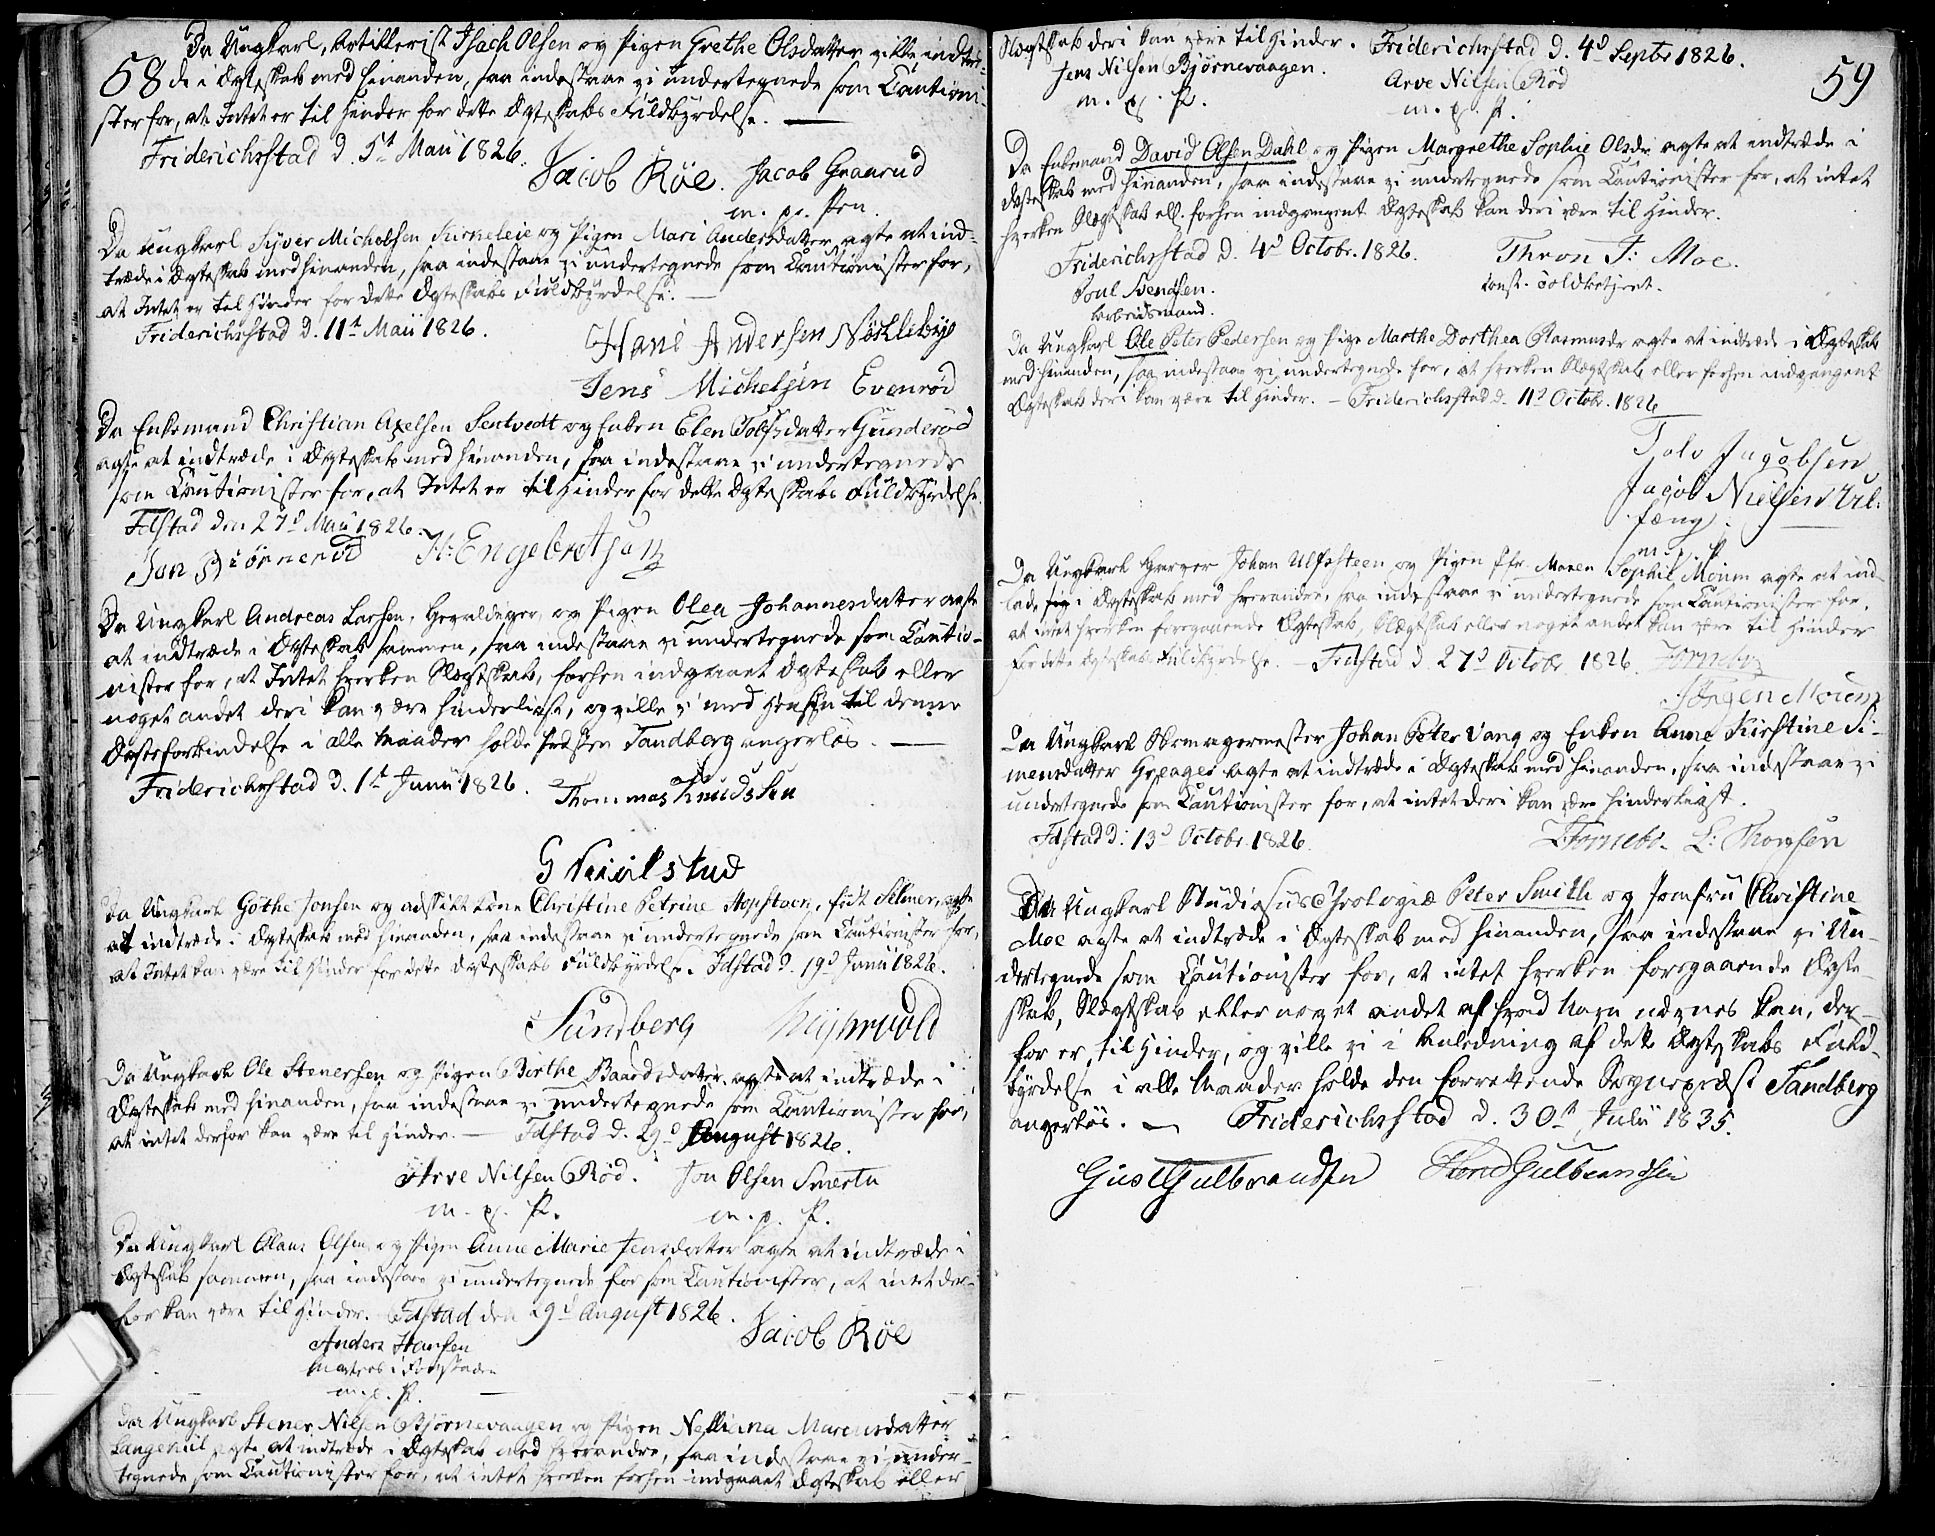 58
Da Ungkarl, Artillerist Isach Olsen og Pigen Grethe Olsdatter ville indtræ-
de i Ægteskab med hinanden, saa indestaae vi undertegnede som Cautioni-
ster for, at Intet er til Hinder for dette Ægteskabs Fuldbyrdelse. —
Friderichstad d. 5t Maii 1826.
Jacob Röe. Jacob Graarud
m. p. Pen.
Da Ungkarl Syver Michelsen Kirneleie og Pigen Mari Andersdatter agte at ind-
træde i Ægteskab med hinanden, saa indestaae vi undertegnede som Cautionister for,
at Intet er til Hinder for dette Ægteskabs Fuldbyrdelse. —
Friderichstad d. 11t Maii 1826.
Hans Andersen Nökleby
Jens Michelsen Evenröd
Da Enkemand Christian Axelsen Sentvedt og Enken Elen Tolfsdatter Gunderöd
agte at indtræde i Ægteskab med hinanden, saa indestaae vi undertegnede
som Cautionister for, at Intet er til Hinder for dette Ægteskabs Fuldbyrdelse.
Fdstad den 27d Maii 1826.
Jan Biörneröd H: Engebretsen
Da Ungkarl Andreas Larsen, Gevaldiger, og Pigen Olea Johannesdatter agte
at indtræde i Ægteskab sammen, saa indestaae vi undertegnede som Cautio-
nister for, at Intet hverken Slægtskab, forhen indgaaet Ægteskab eller
noget andet deri kan være hinderligt, og ville vi med Hensyn til denne
Ægteforbindelse i alle Maader holde Presten Tandberg angerlös. —
Friderichstad d. 1t Junii 1826. Thommas Knudsen
Da Ungkarl Göthe Jonsen og adskilt Kone Christine Petrine Stopsteen, födt Selmer, agte
at indtræde i Ægteskab med hinanden, saa indestaae vi undertegnede som Cautionister for,
at Intet kan være til Hinder for dette Ægteskabs Fuldbyrdelse. Fdstad d. 19d Junii 1826.
Sundberg
Da Ungkarl Ole Stenersen og Pigen Birthe Baardsdatter agte at indtræde i
Ægteskab med hinanden, saa indestaae vi undertegnede som Cautionister for,
at intet derfor kan være til Hinder. — Fdstad d. 29d August 1826.
Arve Nilsen Röd. Jon Olsen Smertu
m. p. P. m. p. P.
Da Ungkarl Olaus Olsen og Pigen Anne Marie Jensdatter agte at indtræde i
Ægteskab sammen, saa indestaae vi undertegnede for som Cautionister, at intet der-
for kan være til Hinder. Fdstad den 29d August 1826.
Anders Hansen Jacob Röe
Matros i Forstaden
m. p. P.
Da Ungkarl Stener Nilsen Björnevaagen og Pigen Nelliana Marcusdatter
Langeniil agte at indtræde i Ægteskab med hverandre, saa indestaae vi under-
tegnede som Cautionister for, at intet hverken forhen indgaaet Ægteskab eller
59
Slægtskab deri kan være til Hinder. Friderichstad d. 4d Septr 1826.
Jens Nilsen Björnevaagen. Arve Nilsen Röd
m. p. P. m. p. P.
Da Enkemand David Olsen Dahl og Pigen Margrethe Sophie Olsdr agte at indtræde i
Ægteskab med hinanden, saa indestaae vi undertegnede som Cautionister for, at intet
hverken Slægtskab ell. forhen indgangent Ægteskab kan deri være til Hinder.
Friderichstad d. 4d Octobr. 1826. Thron T: Moe.
Poul Svendsen. const. Toldbetjent.
Arbeidsmand.
Da Ungkarl Ole Peter Pedersen og Pige Marthe Dorthea Rasmusdr agte at indtræde i Ægteskab
med hinanden, saa indestaae vi undertegnede for, at hverken Slægtskab eller forhen indgangent
Ægteskab deri kan være til Hinder. — Friderichstad d. 11d Octobr. 1826
Tolv Jacobsen
Jacob Nielsen
m. p. P
Da Ungkarl Garver Johan Ulfsteen og Pigen Jfr. Maren Sophie Moum agte at ind-
lade sig i Ægteskab med hverandre, saa indestaae vi undertegnede som Cautionister for,
at intet hverken foregaaende Ægteskab, Slægtskab eller noget andet kan være til Hinder
for dette Ægteskabs Fuldbyrdelse. — Fridstad d. 27d Octobr 1826. Fornebo
Jörgen Moum
Da Ungkarl Skomagermester Johan Peter Vang og Enken Anne Kirstine Si-
mensdatter agte at indtræde i Ægteskab med hinanden, saa indestaae vi
undertegnede som Cautionister for, at intet deri kan være hinderligt.
Fdstad d: 13d Octobr. 1826. Fornebo. L: Thomsen
Da Ungkarl Studiosus Theologiæ Peter Smith og Jomfru Christine
Moe agte at indtræde i Ægteskab med hinanden, saa indestaae vi Un-
dertegnede som Cautionister for, at intet hverken foregaaende Ægte-
skab, Slægtskab eller noget andet af hvad Navn nævnes kan, der-
for er til Hinder, og ville vi i Anledning af dette Ægteskabs Fuld-
byrdelse i alle Maader holde den forrettende Sognepræst Tandberg
angerlös. — Friderichstad d. 30t Julii 1835.
Gust Gulbrandsen Gulbrandsen